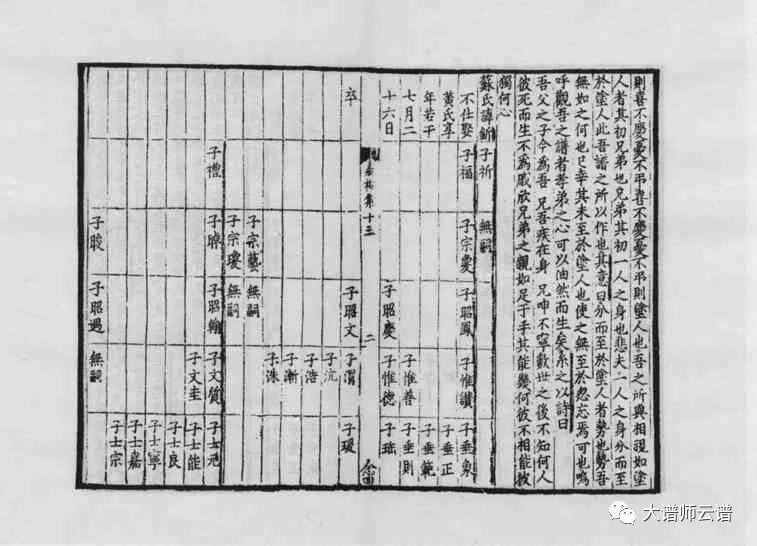 則喜不慶憂不弔喜不慶憂不弔則塗人也吾之所與相視如塗
人者其初兄弟也兄弟其初一人之身也悲夫一人之身分而至
於塗人此吾譜之所以作也其意曰分而至於塗人者勢也勢吾
無如之何也已幸其未至於塗人也使之無至於忽忘焉可也嗚
呼觀吾之譜者孝弟之心可以油然而生矣系之以詩曰
吾父之子今為吾兄吾疾在身兄呻不寧數世之後不知何人
彼死而生不為戚欣兄弟之親如足于手其能幾何彼不相能彼
獨何心
蘇氏諱釿 子祈 無嗣
不仕娶 子福 子宗夐 子昭鳳 子惟讃 子垂象
黃氏享 子垂正
年若干 子垂範
七月二 子惟善 子垂則
十六日 子昭慶 子惟德
卒 子昭文 子渭
集十三 二
子沆
子浩
子漸
子洙
子宗藝 無嗣
子宗瓊 無嗣
子禮 子昭翰 子文質
子文圭 子士能
子士良
子士寧
子士嘉
子昭遇 無嗣 子士宗
大谱师云谱